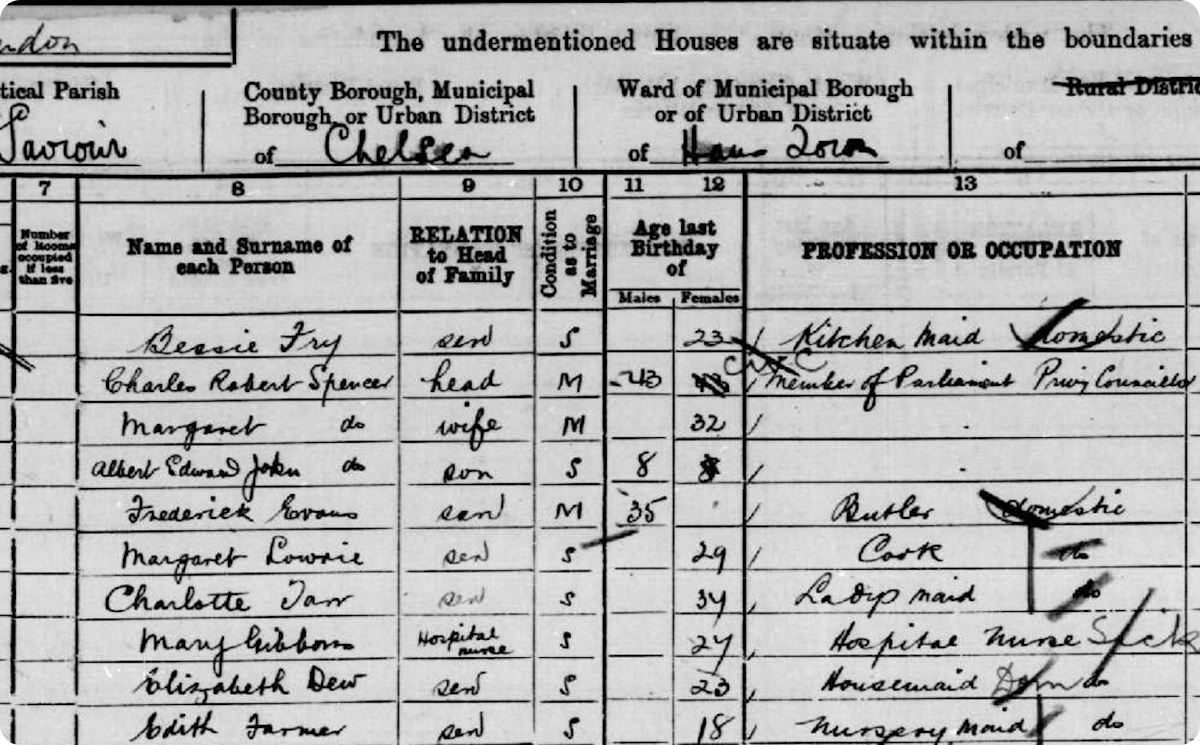 The undermentioned Houses are situate within the boundaries
tical Parish County Borough, Municipal Borough, or Urban District Ward of Municipal Borough or of Urban District Rural Distric
Saviour of Chelsea of Hans Town of
7 8 9 10 11 12 13
Number of Rooms occupied if less than five Name and Surname of each Person RELATION to Head of Family Condition as to Marriage Age last Birthday of PROFESSION OR OCCUPATION
Males Females
Bessie Fry serv S 23 Kitchen Maid domestic
Charles Robert Spencer head M 43 Member of Parliament Privy Councillor
Margaret do wife M 32
Albert Edward John do son S 8
Frederick Evans serv M 35 Butler domestic
Margaret Lowrie serv S 29 Cook do
Charlotte Tarr serv S 34 Ladys maid do
Mary Gibbons Hospital nurse S 27 Hospital nurse Sick
Elizabeth Dew serv S 23 Housemaid Dom do
Edith Farmer serv S 18 Nursery maid do